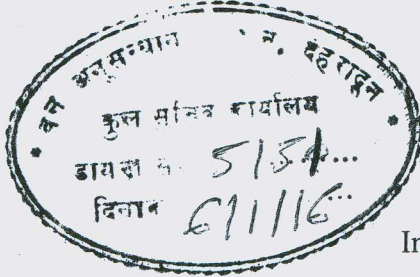 वन अनुसन्धान न, देहरादून
कुल सचिव कार्यालय
डायरी
दिनांक 6/1/16
In